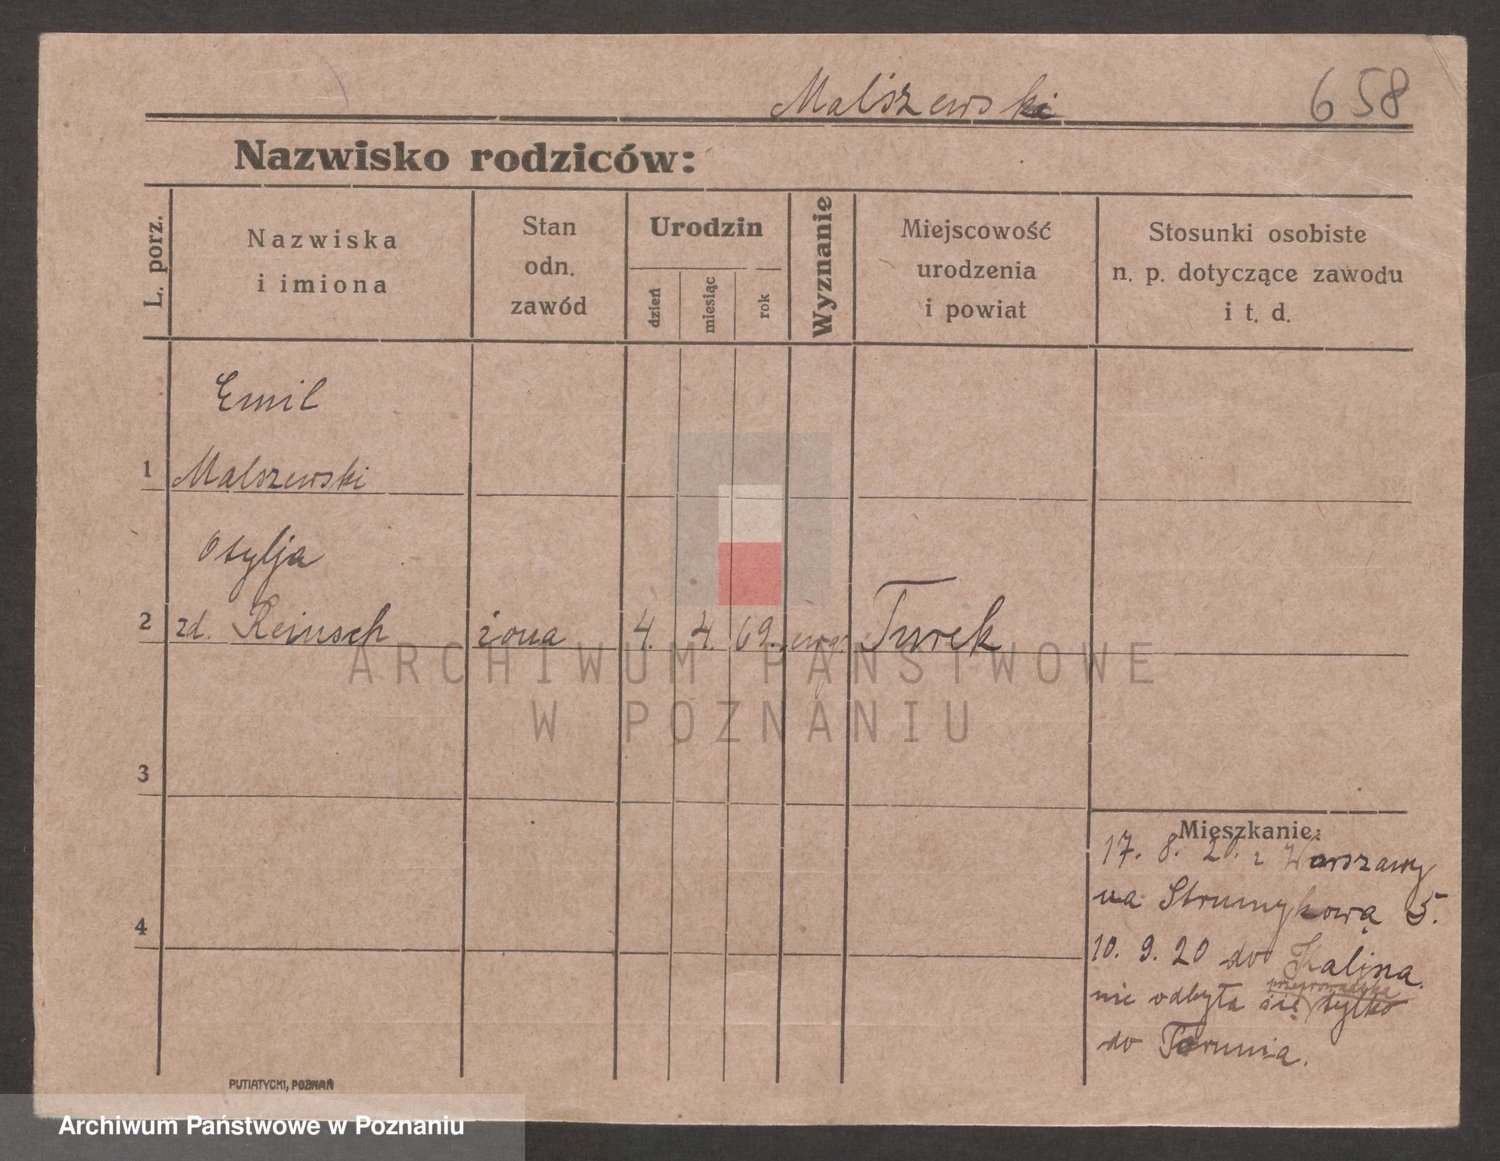 Malszewski
658
Nazwisko rodziców:
L. porz.
Nazwiska
i imiona
Stan
odn.
zawód
Urodzin
dzień
miesiąc
rok
Wyznanie
Miejscowość
urodzenia
i powiat
Stosunki osobiste
n. p. dotyczące zawodu
i t. d.
Emil
1 Malszewski
Otylja
2 zd. Reinsch żona 4. 4. 69. ewg. Turek
3
4
Mieszkanie:
17. 8. 20. z Warszawy
na Strumykową 5.
10. 9. 20 do Kalina
nie odbyła się tylko
do Torunia.
PUTIATYCKI, POZNAŃ
ARCHIWUM PAŃSTWOWE
W POZNANIU
Archiwum Państwowe w Poznaniu